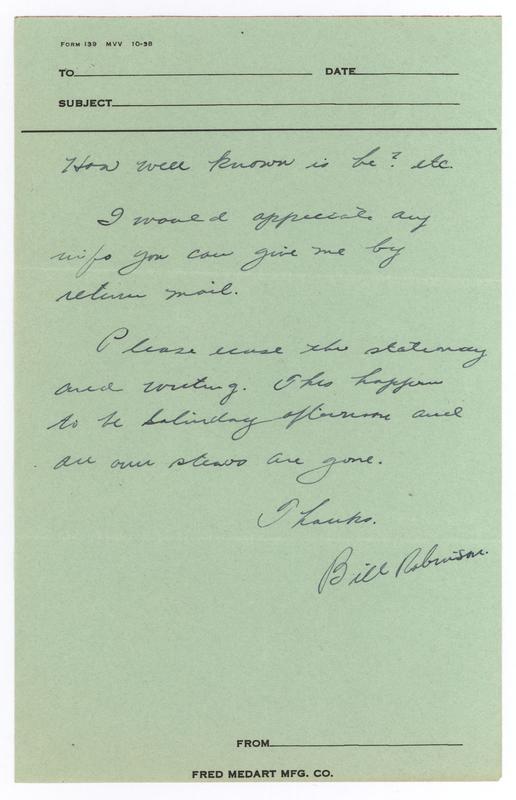 FORM 139 MVV 10-38
TO DATE
SUBJECT
How well known is he? etc.
I would appreciate any
info you can give me by
return mail.
Please excuse the stationary
and writing. This happen
to be Saturday afternoon and
all our stenos are gone.
Thanks.
Bill Robinson.
FROM
FRED MEDART MFG. CO.